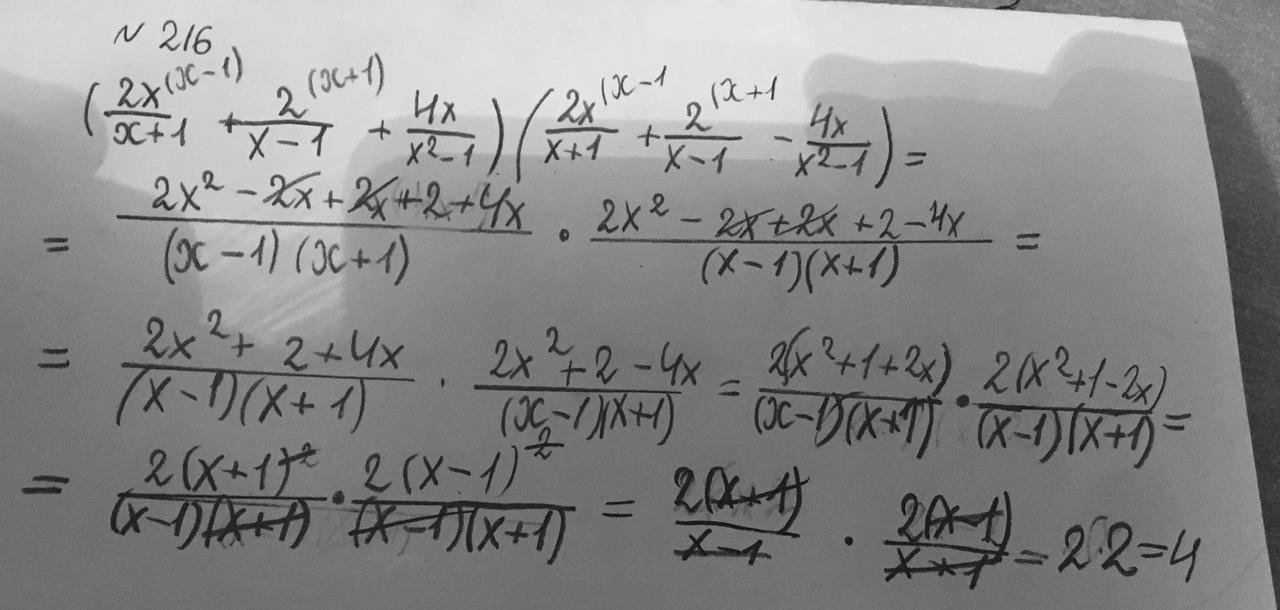 N 216
(2x^(x-1)/x+1 + 2^(x+1)/x-1 + 4x/x²-1)(2x^(x-1/x+1 + 2^(x+1/x-1 - 4x/x²-1) =
= 2x² - 2x + 2x + 2 + 4x/(x-1)(x+1) · 2x² - 2x + 2x + 2 - 4x/(x-1)(x+1) =
= 2x² + 2 + 4x/(x-1)(x+1) · 2x² + 2 - 4x/(x-1)(x+1) = 2(x²+1+2x)/(x-1)(x+1) · 2(x²+1-2x)/(x-1)(x+1) =
= 2(x+1)²/(x-1)(x+1) · 2(x-1)²/(x-1)(x+1) = 2(x+1)/x-1 · 2(x-1)/x+1 = 2·2=4